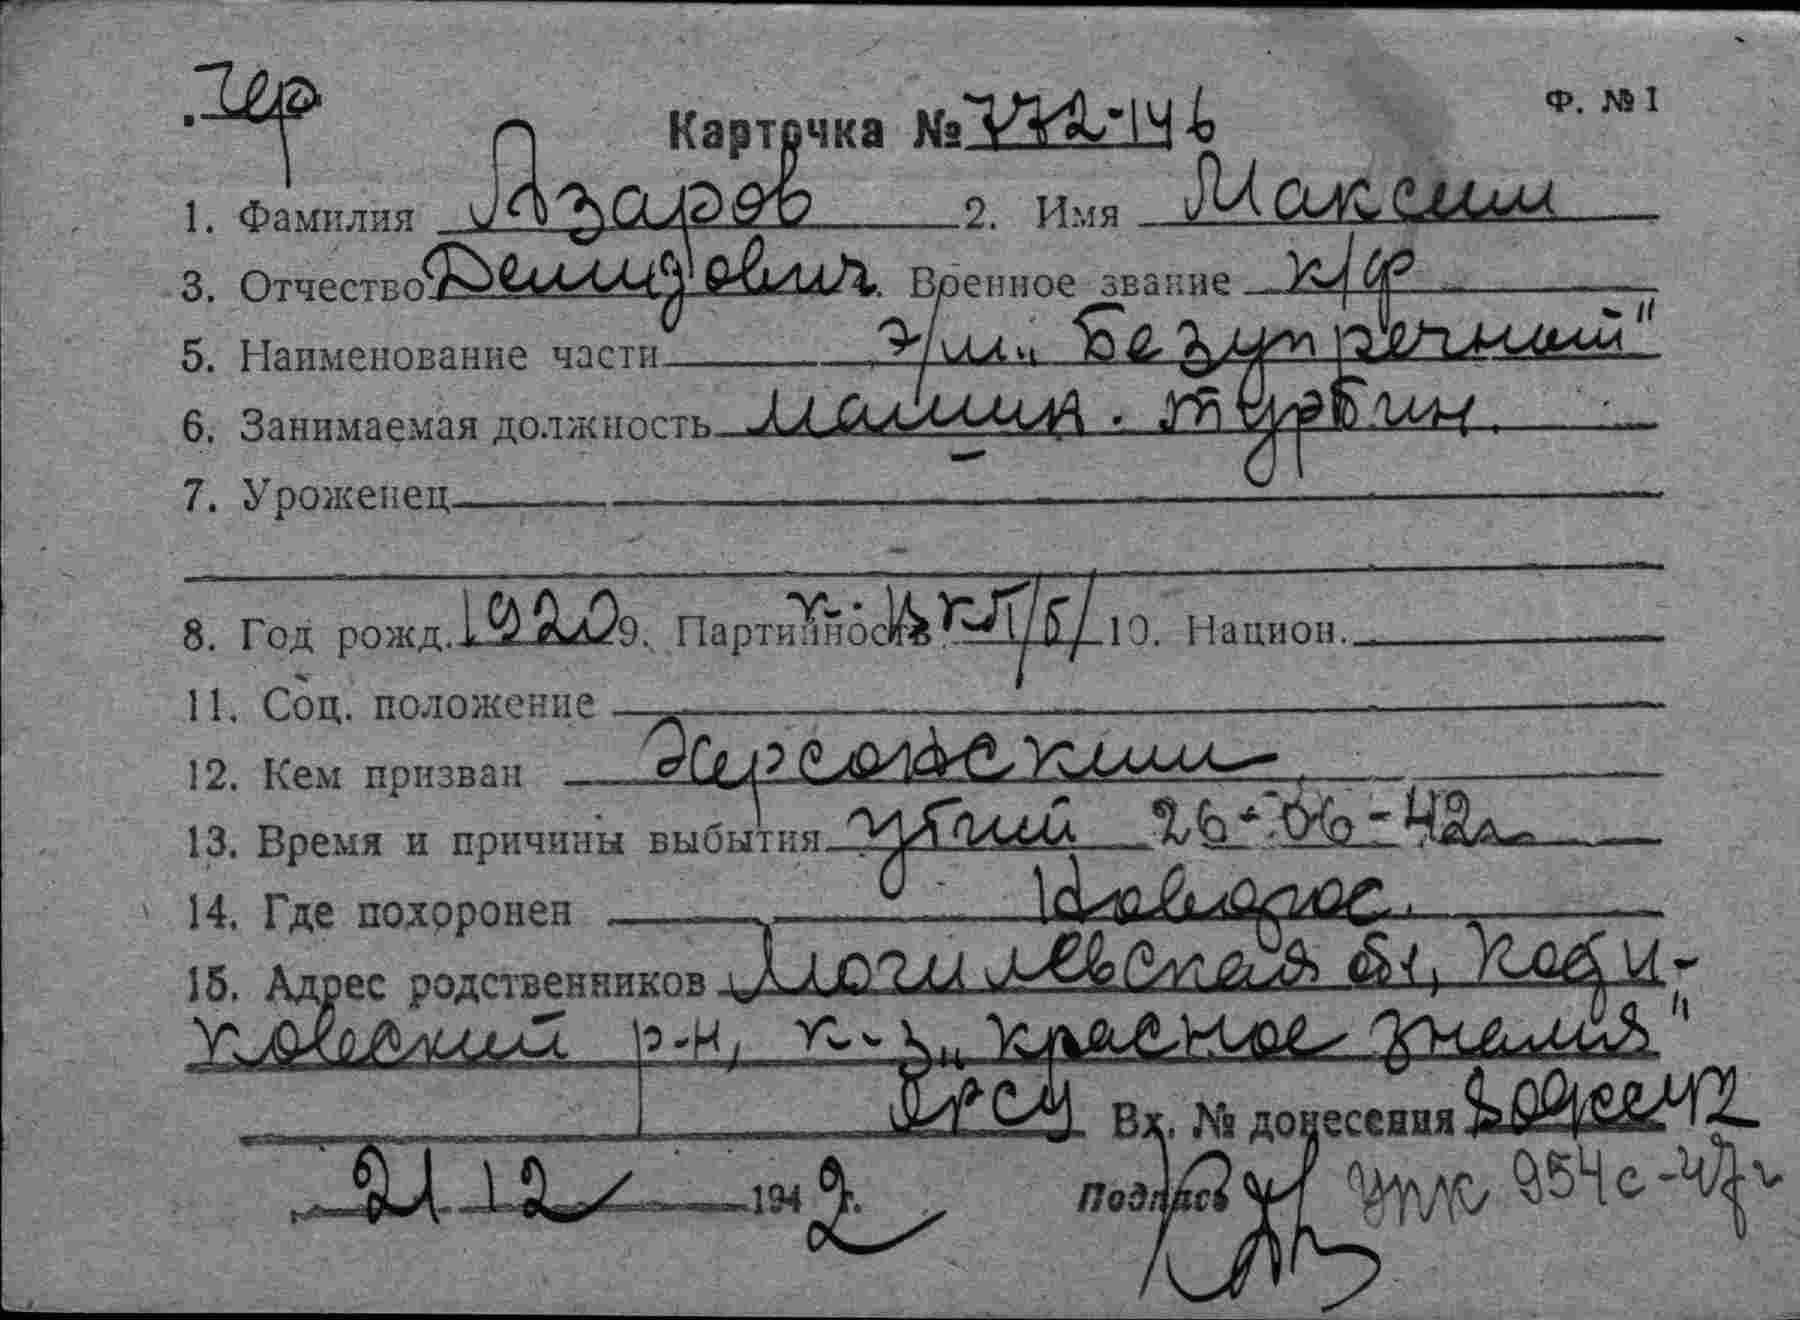 Чер
Ф. № 1
Карточка № 772-146
1. Фамилия Азаров 2. Имя Максим
3. Отчество Демидович. Военное звание к/ф
5. Наименование части э/м „Безупречный"
6. Занимаемая должность машин. турбин.
7. Уроженец
8. Год рожд. 1920 9. Партийность к. ВКП/б/ 10. Национ.
11. Соц. положение
12. Кем призван Херсонским
13. Время и причины выбытия убит 26-06-42г
14. Где похоронен Новорос.
15. Адрес родственников Могилевская обл, Кади-
ковский р-н, к-з „красное знамя"
Вх. № донесения
21 12 1942 г.
Подпись упк 954с-47г